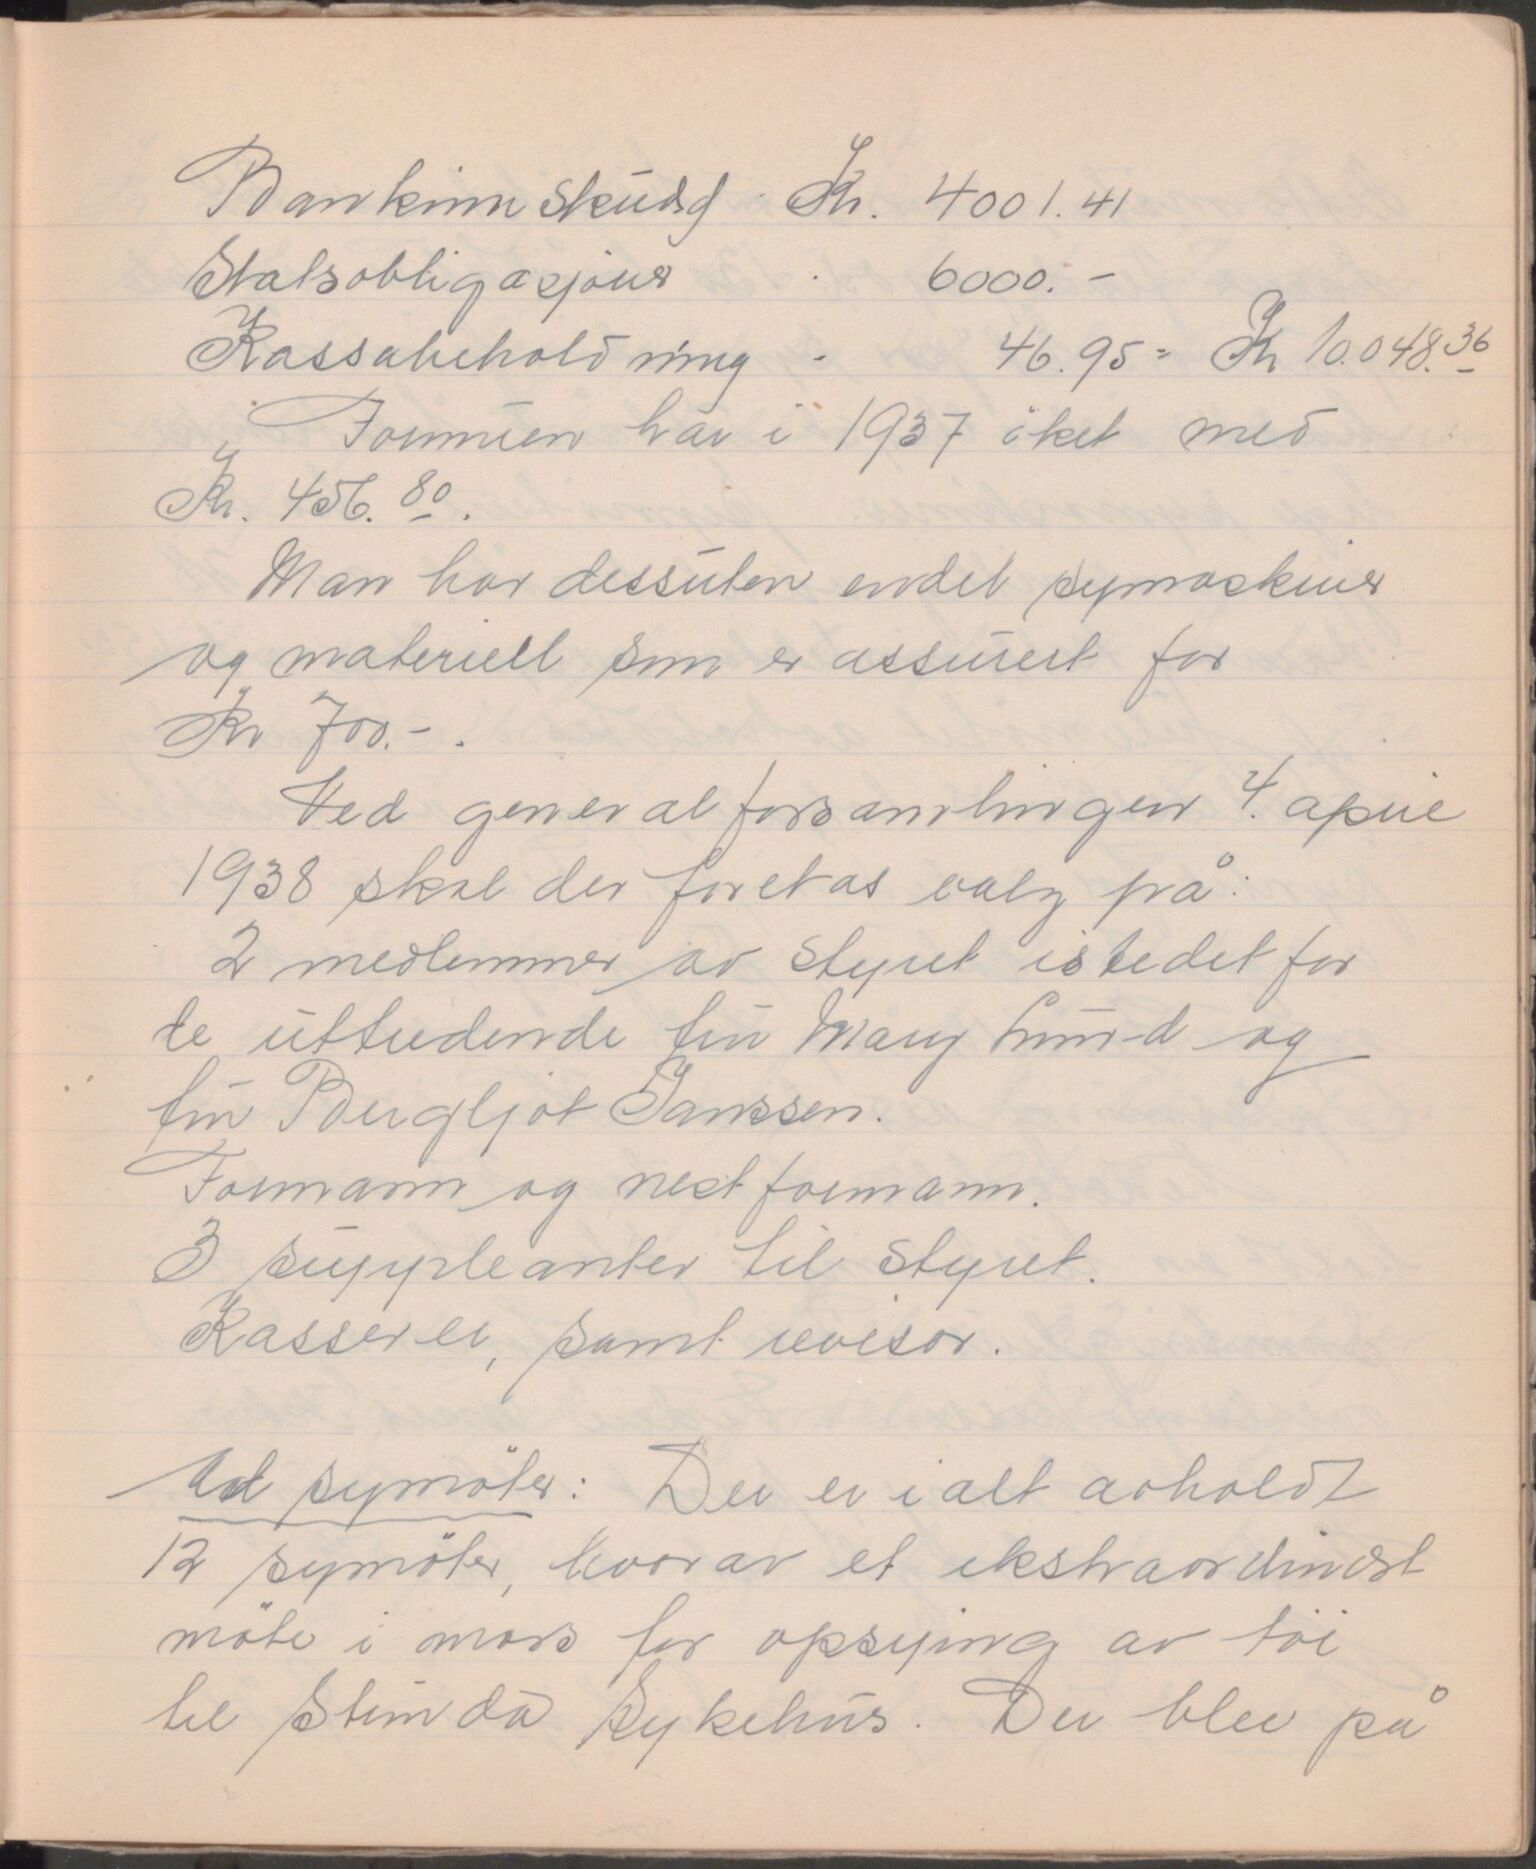 Bankinnskudd Kr. 4001.41
Statsobligasjoner " 6000.-
Kassabeholdning - 46.95 = Kr 10.048.36
Formuen har i 1937 öket med
Kr. 456.80.
Man har dessuten endel symaskiner
og materiell som er assurert for
Kr 700.-.
Ved generalforsamlingen 4. april
1938 skal der foretas valg på:
2 medlemmer av styret istedet for
de uttredende fru Mary Lund og
fru Bergljot Janssen.
Formann og nestformann.
3 suppleanter til styret.
Kasserer, samt revisor.
Ad symöter: Der er i alt avholdt
12 symöter, hvorav et ekstraordinært
möte i mars for opsying av töi
til Strinda Sykehus. Der blev på